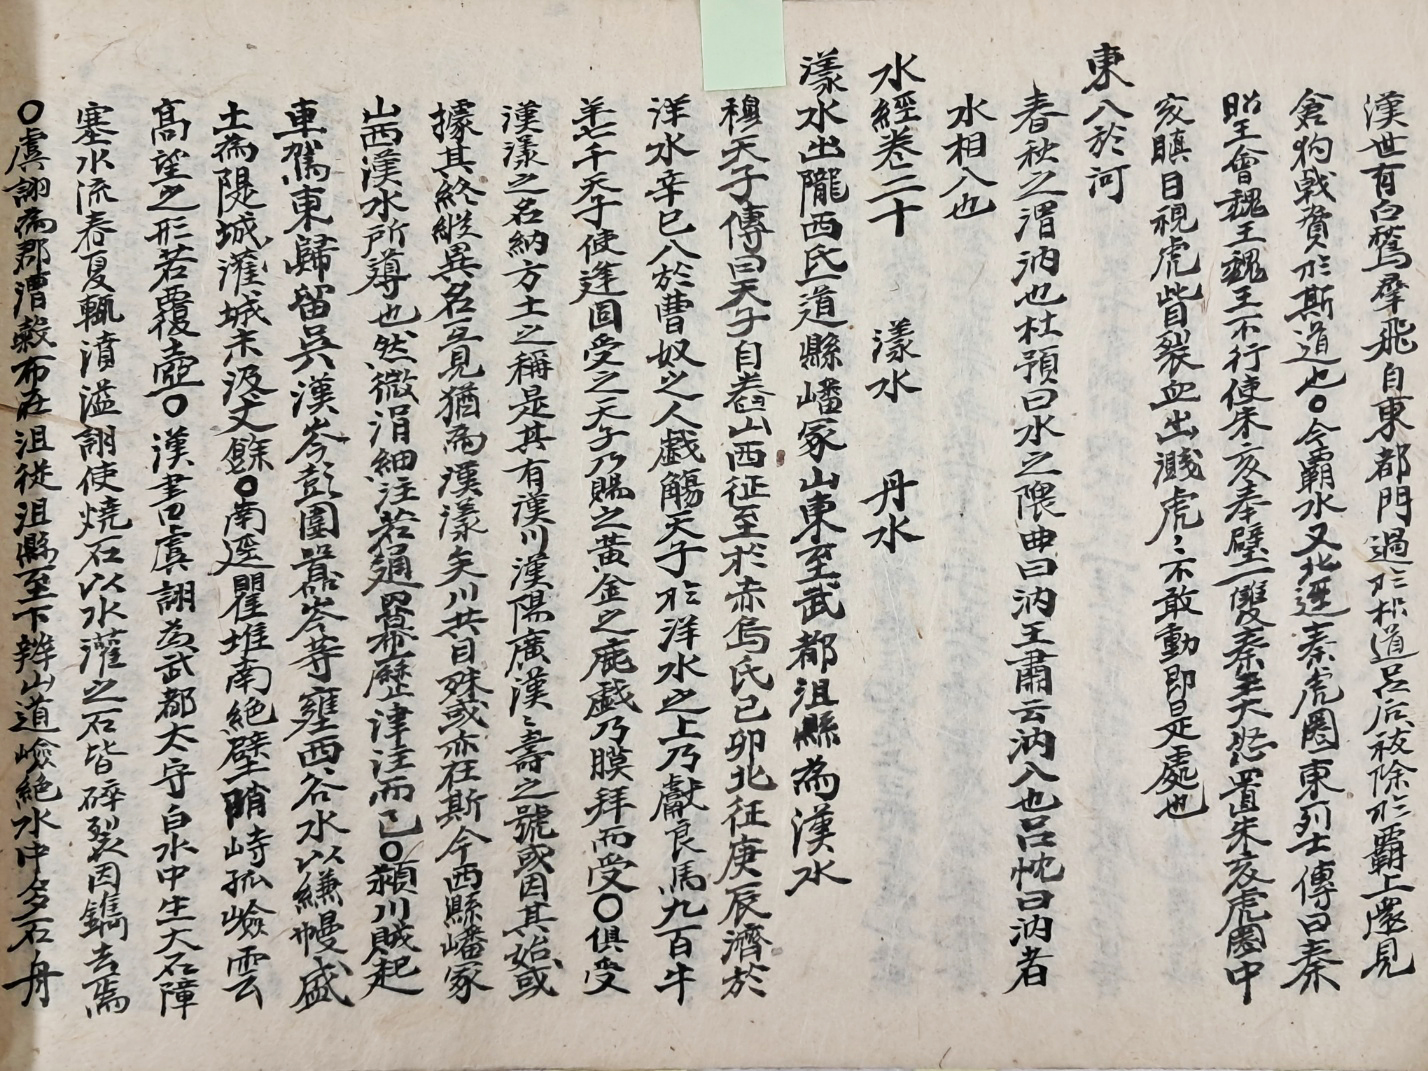 漢世有白鵞羣飛自東都門過於枳道呂后祓除於霸上還見
倉狗戟賚於斯道也○今霸水又北逕秦虎圈東列士傳曰秦
昭王會魏王魏王不行使朱亥奉璧一雙秦王大怒置朱亥虎圈中
亥瞋目視虎眥裂血出濺虎〻不敢動即是處也
東入於河
春秋之渭汭也杜預曰水之隈曲曰汭王肅云汭入也呂忱曰汭者
水相入也
水經卷二十　漾水　丹水
漾水出隴西氐道縣嶓冢山東至武都沮縣為漢水
穆天子傳曰天子自舂山西征至於赤烏氏已卯北征庚辰濟於
洋水辛巳入於曹奴之人戲觴天子於洋水之上乃獻良馬九百牛
羊七千天子使逢固受之天子乃賜之黃金之鹿戲乃膜拜而受○俱受
漢漾之名納方土之稱是其有漢川漢陽廣漢〻壽之號或因其始或
據其終縱異名互見猶為漢漾矣川共目殊或亦在斯今西縣嶓冢
山西漢水所導也然微涓細注若通冪歷津注而已○潁川賊起
車駕東歸留吳漢岑彭圍囂岑等壅西谷水以縑幔盛
土為隄城灌城未汲丈餘○南逕瞿堆南絕壁峭峙孤嶮雲
高望之形若覆壺○漢書曰虞詡為武都太守白水中生大石障
塞水流春夏輒濆溢詡使燒石以水灌之石皆碎裂因鐫去焉
○虞詡為郡漕穀布在沮從沮縣至下辨山道嶮絕水中多石舟